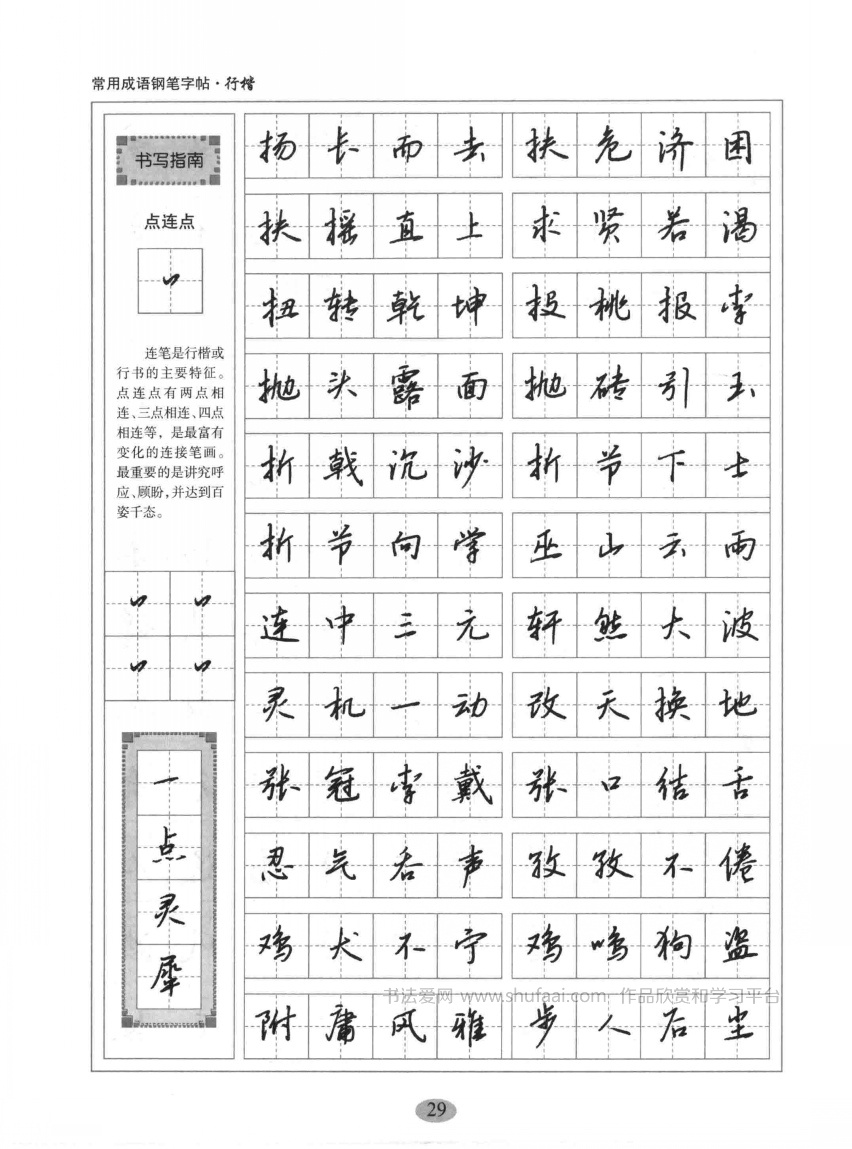 常用成语钢笔字帖·行楷
书写指南
点连点
连笔是行楷或
行书的主要特征。
点连点有两点相
连、三点相连、四点
相连等，是最富有
变化的连接笔画。
最重要的是讲究呼
应、顾盼，并达到百
姿千态。
一
点
灵
犀
扬长而去 扶危济困
扶摇直上 求贤若渴
扭转乾坤 投桃报李
抛头露面 抛砖引玉
折戟沉沙 折节下士
折节向学 巫山云雨
连中三元 轩然大波
灵机一动 改天换地
张冠李戴 张口结舌
忍气吞声 孜孜不倦
鸡犬不宁 鸡鸣狗盗
附庸风雅 步人后尘
书法爱网 www.shufaai.com 作品欣赏和学习平台
29